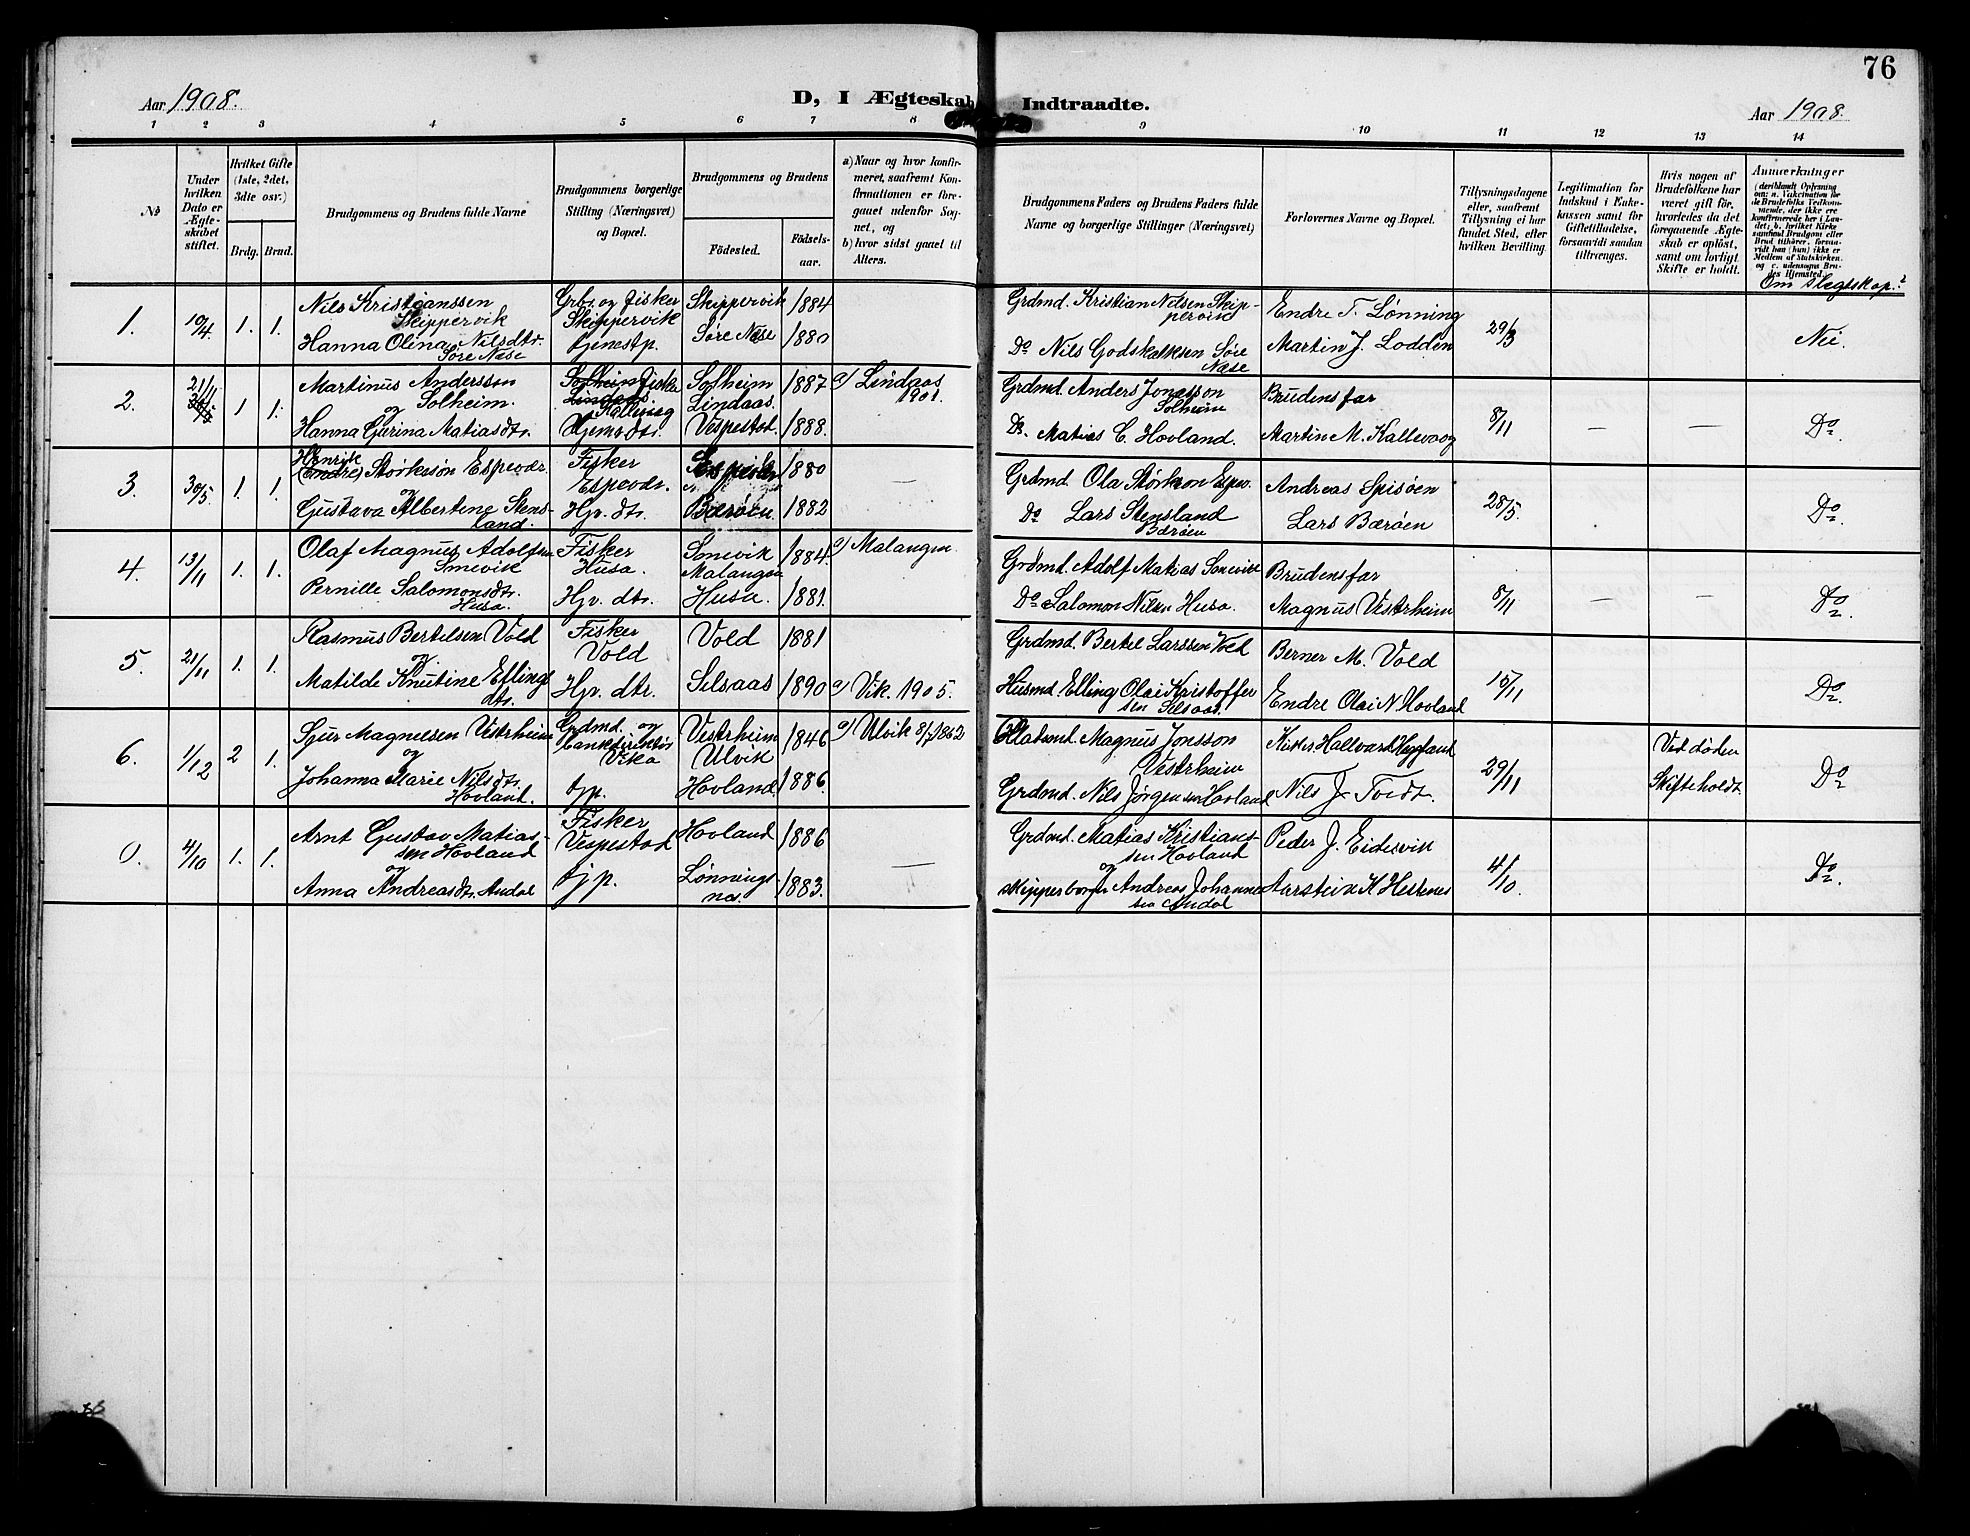 76
Aar 1908.
D, I Ægteskab Indtraadte.
Aar 1908.
1 2 3 4 5 6 7 8 9 10 11 12 13 14
№
Under
hvilken
Dato er
Ægte-
skabet
stiftet.
Hvilket Gifte
(1ste, 2det,
3die osv.)
Brdg. Brud.
Brudgommens og Brudens fulde Navne
Brudgommens borgerlige
Stilling (Næringsvei)
og Bopæl.
Brudgommens og Brudens
Fødested.
Fødsels-
aar.
a) Naar og hvor konfir-
meret, saafremt Kon-
firmationen er fore-
gaaet udenfor Sog-
net, og
b) hvor sidst gaaet til
Alters.
Brudgommens Faders og Brudens Faders fulde
Navne og borgerlige Stillinger (Næringsvei)
Forlovernes Navne og Bopæl.
Tillysningsdagene
eller, saafremt
Tillysning ei har
fundet Sted, efter
hvilken Bevilling.
Legitimation for
Indskud i Enke-
kassen samt for
Giftetilladelse,
forsaavidt saadan
tiltrænges.
Hvis nogen af
Brudefolkene har
været gift før,
hvorledes da det
foregaaende Ægte-
skab er opløst,
samt om lovligt
Skifte er holdt.
Anmærkninger
(deriblandt Oplysning
om: a. Vakcination for
de Brudefolks Vedkom-
mende, der ikke ere
konfirmerede her i Lan-
det; b. hvilket Kirke
samfund Brudgom eller
Brud tilhører, forsaa-
vidt han (hun) ikke er
Medlem af Statskirken.
og c. udensogns Bru-
des Hjemsted.)
Om slegtskap?
1. 10/4 1. 1.
Nils Kristianssen
Skippervik
Hanna Olina Nilsdtr.
Søre Næse
Grbr. og Fisker
Skippervik
Tjenestp.
Skippervik 1884
Søre Næse 1880
Grdmd. Kristian Nilsen Skip-
pervik
Do Nils Godskalksen Søre
Næse
Endre T. Lønning
Martin J. Lodden
29/3
Nei.
2. 21/11 1 1.
Martinus Andersson
og Solheim.
Hanna Gurina Matiasdtr.
Solheim Fisker
Lindaas.
Kallevag
Hjemvdtr.
Solheim 1887
Lindaas.
Vespestad. 1888.
a) Lindaas
1901.
Grdmd. Anders Jonasson
Solheim
Do. Matias C. Hovland.
Brudens far
Martin M. Kallevaag
8/11 — — Do.
3. 30/5 1. 1.
Henrik
(Endre) Størkersøn Espevær.
og
Gustava Albertine Stens-
land.
Fisker
Espevær.
Hjv. dtr.
1880
Bærøen. 1882
—
Grdmd. Ola Størkson Espev.
Do Lars Stensland
Bærøen
Andreas Spisøen
Lars Bærøen
28/5. Do.
4. 13/11 1. 1.
Olaf Magnus Adolfsen
Smevik
Pernille Salomonsdtr.
Husa.
Fisker
Husa.
Hjv. dtr.
Smevik 1884.
Malangen
Husa. 1881.
a) Malangen
Grdmd. Adolf Matias Smevik
Do Salomon Nilsen Husa.
Brudens far
Magnus Vestrheim
8/11 — — Do.
5. 21/11 1. 1.
Rasmus Bertelsen Vold
og
Matilde Knutine Ellings
dtr.
Fisker
Vold
Hjv. dtr.
Vold 1881
Selsaas 1890
a) Vik. 1905.
Grdmd. Bertel Larssen Vold
Husmd. Elling Olai Kristoffer
sen Selsaas.
Berner M. Vold
Endre Olai N. Hovland
15/11 Do.
6. 1/12 2 1.
Sjur Magnussen Vestrheim
og
Johanna Marie Nilsdtr.
Hovland.
Grdmd. og
bankdirektør
Vika
tjp.
Vestrheim 1846
Ulvik
Hovland 1886.
a) Ulvik 8/7 1862
Magnus Jonsson
Vestrheim
Grdmd. Nils Jørgensen Hovland
Hallvard Hygland
Nils J. Tvedt.
29/11
Ved døden
Skifte holdt.
Do
0. 4/10 1. 1.
Arnt Gustav Matias-
sen Hovland
og
Anna Andreasdtr. Andal
Fisker
Vespestad
tjp.
Hovland 1886
Lønnings 1883.
—
Grdmd. Matias Kristians-
sen Hovland
og
Skipperborger Andreas Johanne
sen Andal
Peder J. Eidesvik
Aarstein K. Hestenes
4/10 Do.